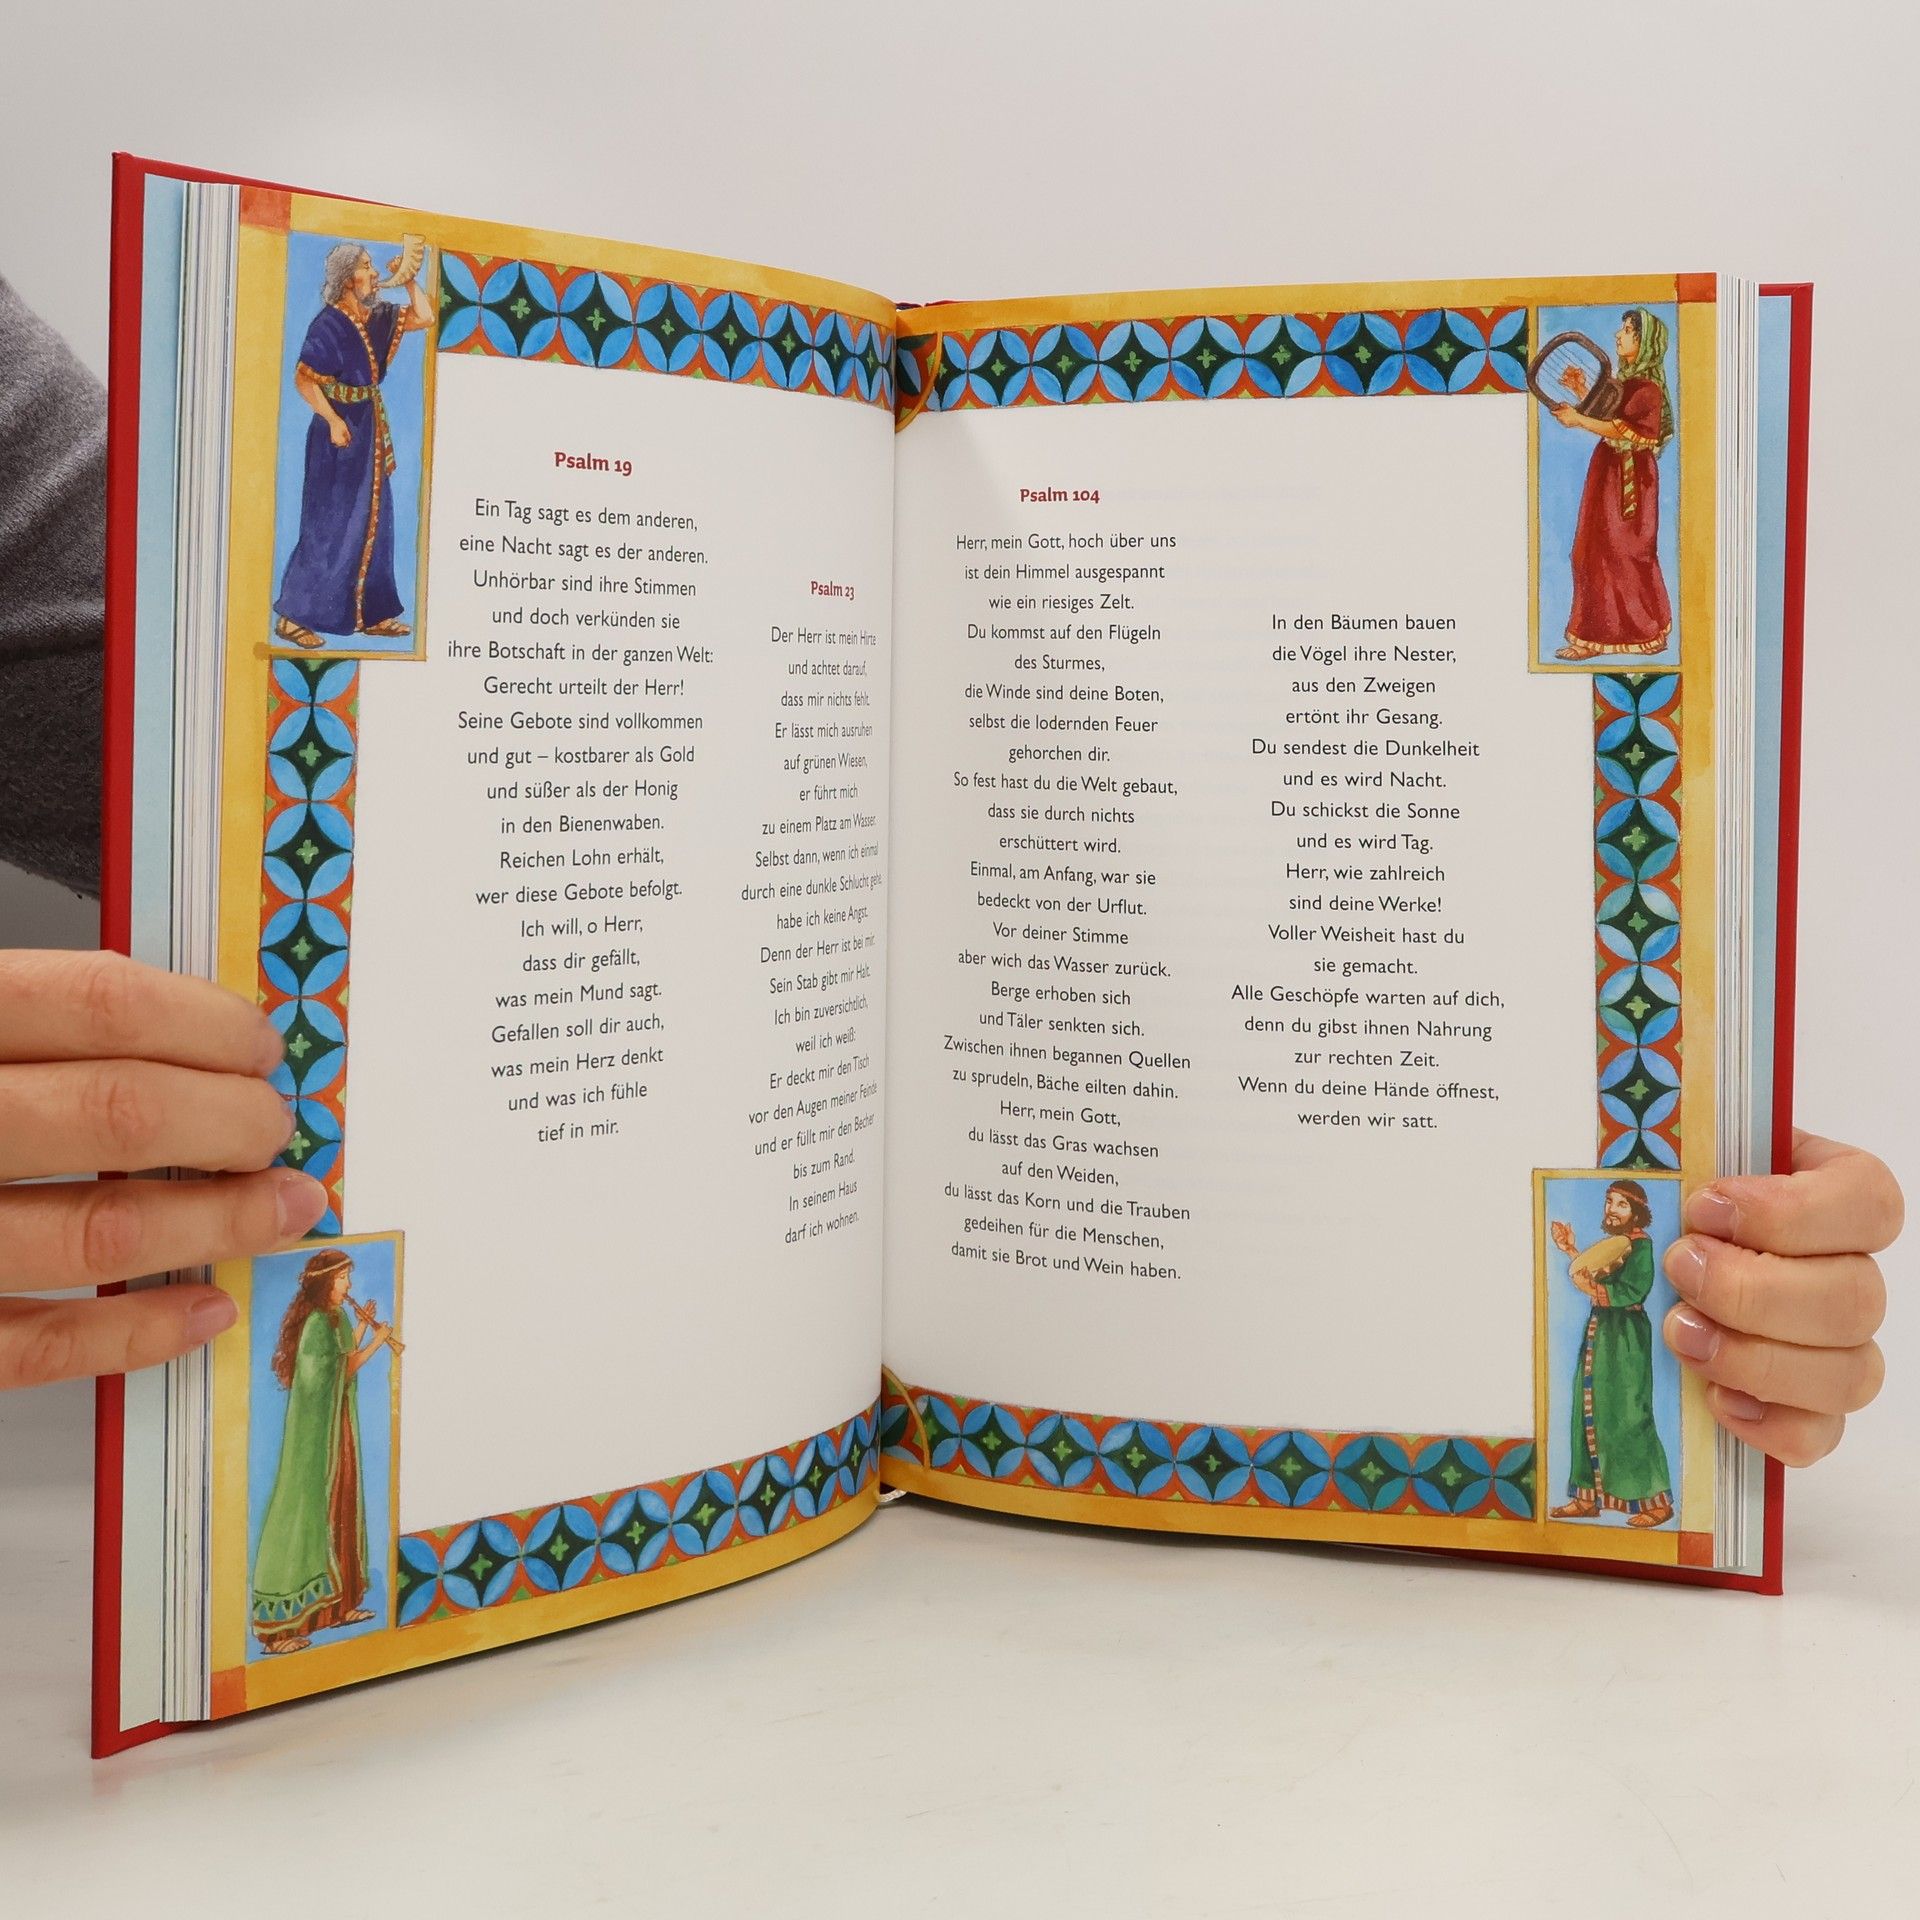 Psalm 19
Ein Tag sagt es dem anderen,
eine Nacht sagt es der anderen.
Unhörbar sind ihre Stimmen
und doch verkünden sie
ihre Botschaft in der ganzen Welt:
Gerecht urteilt der Herr!
Seine Gebote sind vollkommen
und gut – kostbarer als Gold
und süßer als der Honig
in den Bienenwaben.
Reichen Lohn erhält,
wer diese Gebote befolgt.
Ich will, o Herr,
dass dir gefällt,
was mein Mund sagt.
Gefallen soll dir auch,
was mein Herz denkt
und was ich fühle
tief in mir.
Psalm 23
Der Herr ist mein Hirte
und achtet darauf,
dass mir nichts fehlt.
Er lässt mich ausruhen
auf grünen Wiesen,
er führt mich
zu einem Platz am Wasser.
Selbst dann, wenn ich einmal
durch eine dunkle Schlucht gehe,
habe ich keine Angst.
Denn der Herr ist bei mir.
Sein Stab gibt mir Halt.
Ich bin zuversichtlich,
weil ich weiß:
Er deckt mir den Tisch
vor den Augen meiner Feinde
und er füllt mir den Becher
bis zum Rand.
In seinem Haus
darf ich wohnen.
Psalm 104
Herr, mein Gott, hoch über uns
ist dein Himmel ausgespannt
wie ein riesiges Zelt.
Du kommst auf den Flügeln
des Sturmes,
die Winde sind deine Boten,
selbst die lodernden Feuer
gehorchen dir.
So fest hast du die Welt gebaut,
dass sie durch nichts
erschüttert wird.
Einmal, am Anfang, war sie
bedeckt von der Urflut.
Vor deiner Stimme
aber wich das Wasser zurück.
Berge erhoben sich
und Täler senkten sich.
Zwischen ihnen begannen Quellen
zu sprudeln, Bäche eilten dahin.
Herr, mein Gott,
du lässt das Gras wachsen
auf den Weiden,
du lässt das Korn und die Trauben
gedeihen für die Menschen,
damit sie Brot und Wein haben.
In den Bäumen bauen
die Vögel ihre Nester,
aus den Zweigen
ertönt ihr Gesang.
Du sendest die Dunkelheit
und es wird Nacht.
Du schickst die Sonne
und es wird Tag.
Herr, wie zahlreich
sind deine Werke!
Voller Weisheit hast du
sie gemacht.
Alle Geschöpfe warten auf dich,
denn du gibst ihnen Nahrung
zur rechten Zeit.
Wenn du deine Hände öffnest,
werden wir satt.